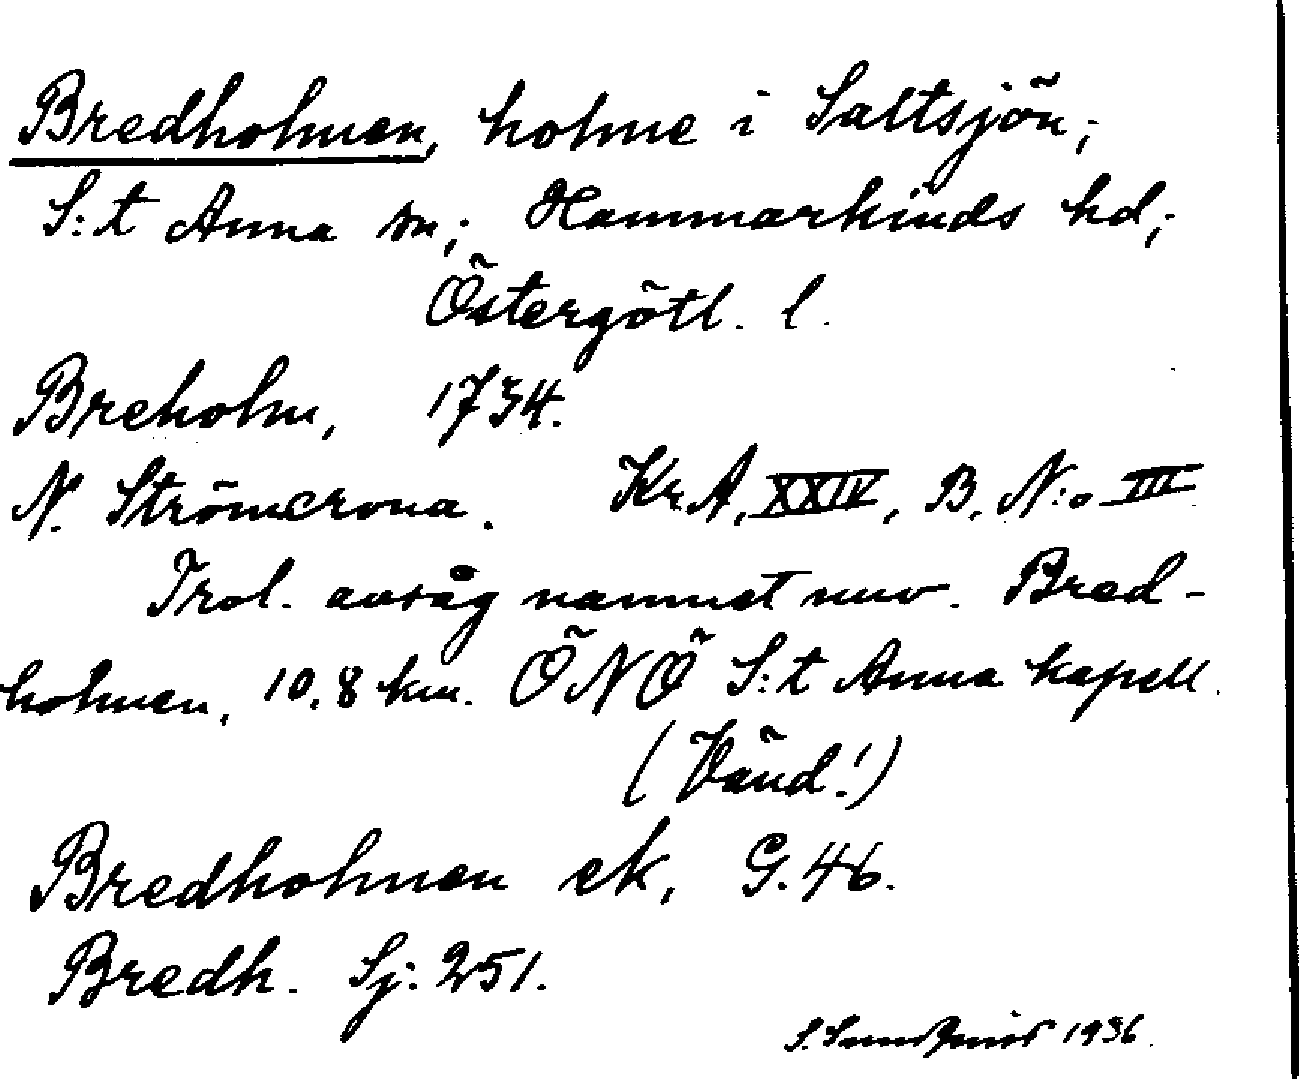 Bredholmen, holme i Saltsjön;
S:t Anna sn; Hammarkinds hd;
Östergötl. l.
Breholm, 1734.
N. Strömcrona. Kr.A. XXIV, B. N:o III
Trol. avsåg namnet nuv. Bred-
holmen, 10,8 km. ÖNÖ S:t Anna kapell.
(Vänd!)
Bredholmen ek, G. 46.
Bredh. Sj: 251.
S. 1936.